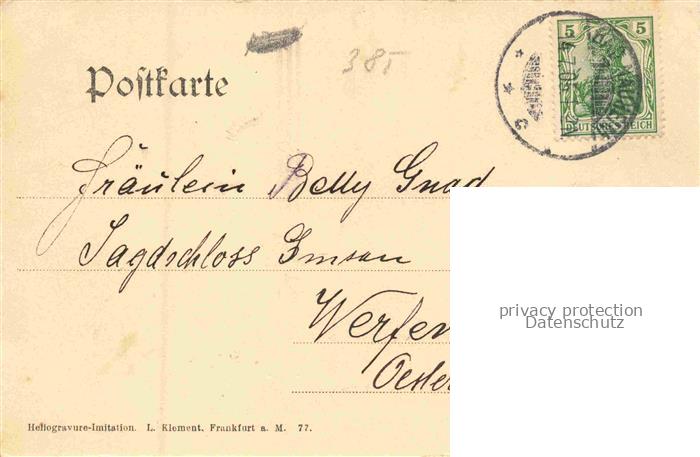 Postkarte
385
5 5
DEUTSCHES REICH
Fräulein Betty Gnad
Jagdschloss Imsan
Werfen
Oester
privacy protection
Datenschutz
Heliogravure-Imitation. L. Klement, Frankfurt a. M. 77.